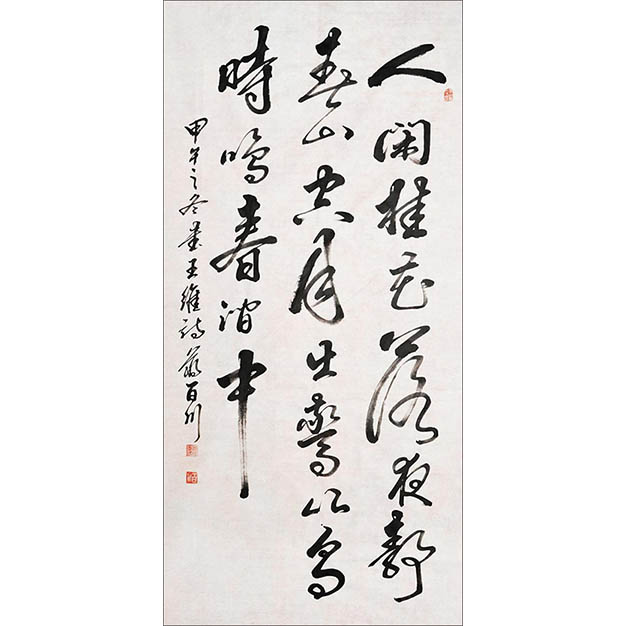 人閑桂花落夜靜
春山空月出驚山鳥
時鳴春澗中
甲午之冬書王維詩百川